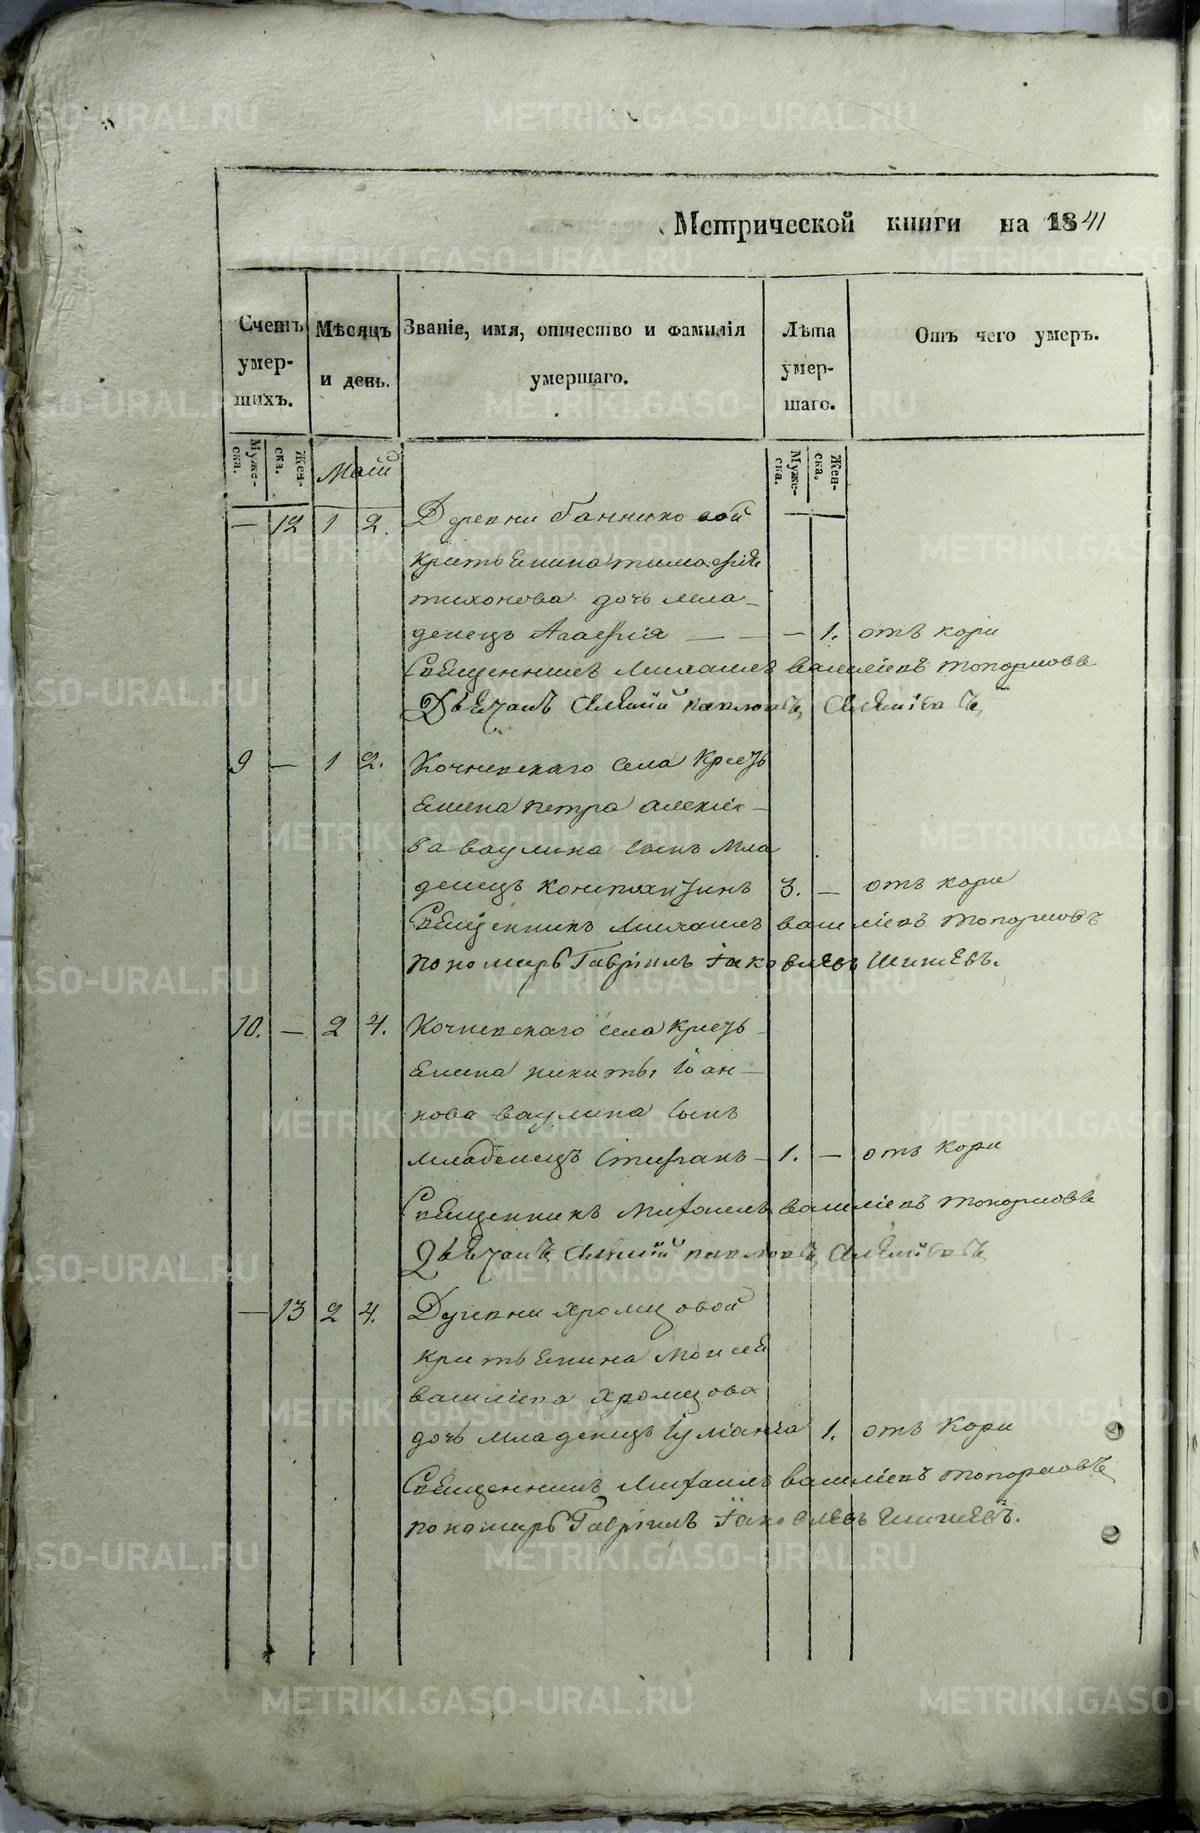 Метрической книги на 1841
Счетъ умер-шихъ.
Мѣсяцъ и день.
Званіе, имя, отчество и фамилія умершаго.
Лѣта умер-шаго.
Отъ чего умеръ.
Муже-ска.
Жен-ска.
Маій
Муже-ска.
Жен-ска.
— 12 1 2. Деревни Банниковой
крестьянина
тихонова дочь мла-
денецъ — — — 1. отъ кори
Священникъ Михаилъ Василіевъ Топорковъ
Дьячокъ Алексій Павловъ
9 — 1 2. Кочневскаго села Кресть
янина петра алексіе-
ва ваулина сынъ мла
денецъ константинъ 3. — отъ кори
Священникъ Михаилъ Василіевъ Топорковъ
пономарь Гавріилъ Іаковлевъ Шишевъ.
10. — 2 4. Кочневскаго села Кресть
янина никиты Іоан-
нова ваулина сынъ
младенецъ Стефанъ — 1. — отъ кори
Священникъ Михаилъ Василіевъ Топорковъ
Дьячокъ Алексій Павловъ
— 13 2 4. Деревни Хромцовой
крестьянина Моисея
василіева Хромцова
дочь младенецъ Іуліанія 1. отъ Кори
Священникъ Михаилъ Василіевъ Топорковъ
пономарь Гавріилъ Іаковлевъ Шишевъ.
METRIKI.GASO-URAL.RU